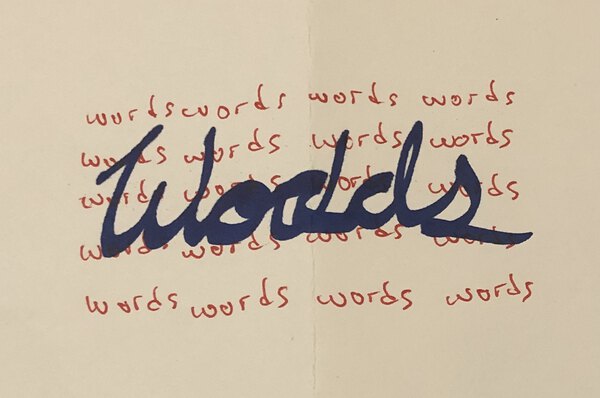 words words words words
words words words words
words words words words
Wodds
words words words words
words words words words